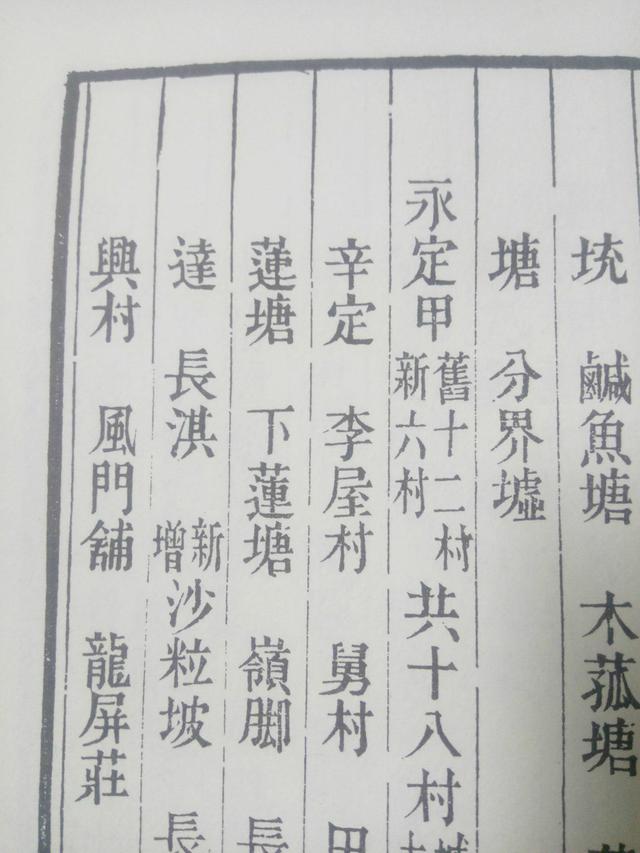 㘬 鹹魚塘 木菰塘
塘 分界墟
永定甲 舊十二村 新六村 共十八村
辛定 李屋村 舅村 田
蓮塘 下蓮塘 嶺脚 長
達 長淇 新增 沙粒坡 長
興村 風門舖 龍屏莊